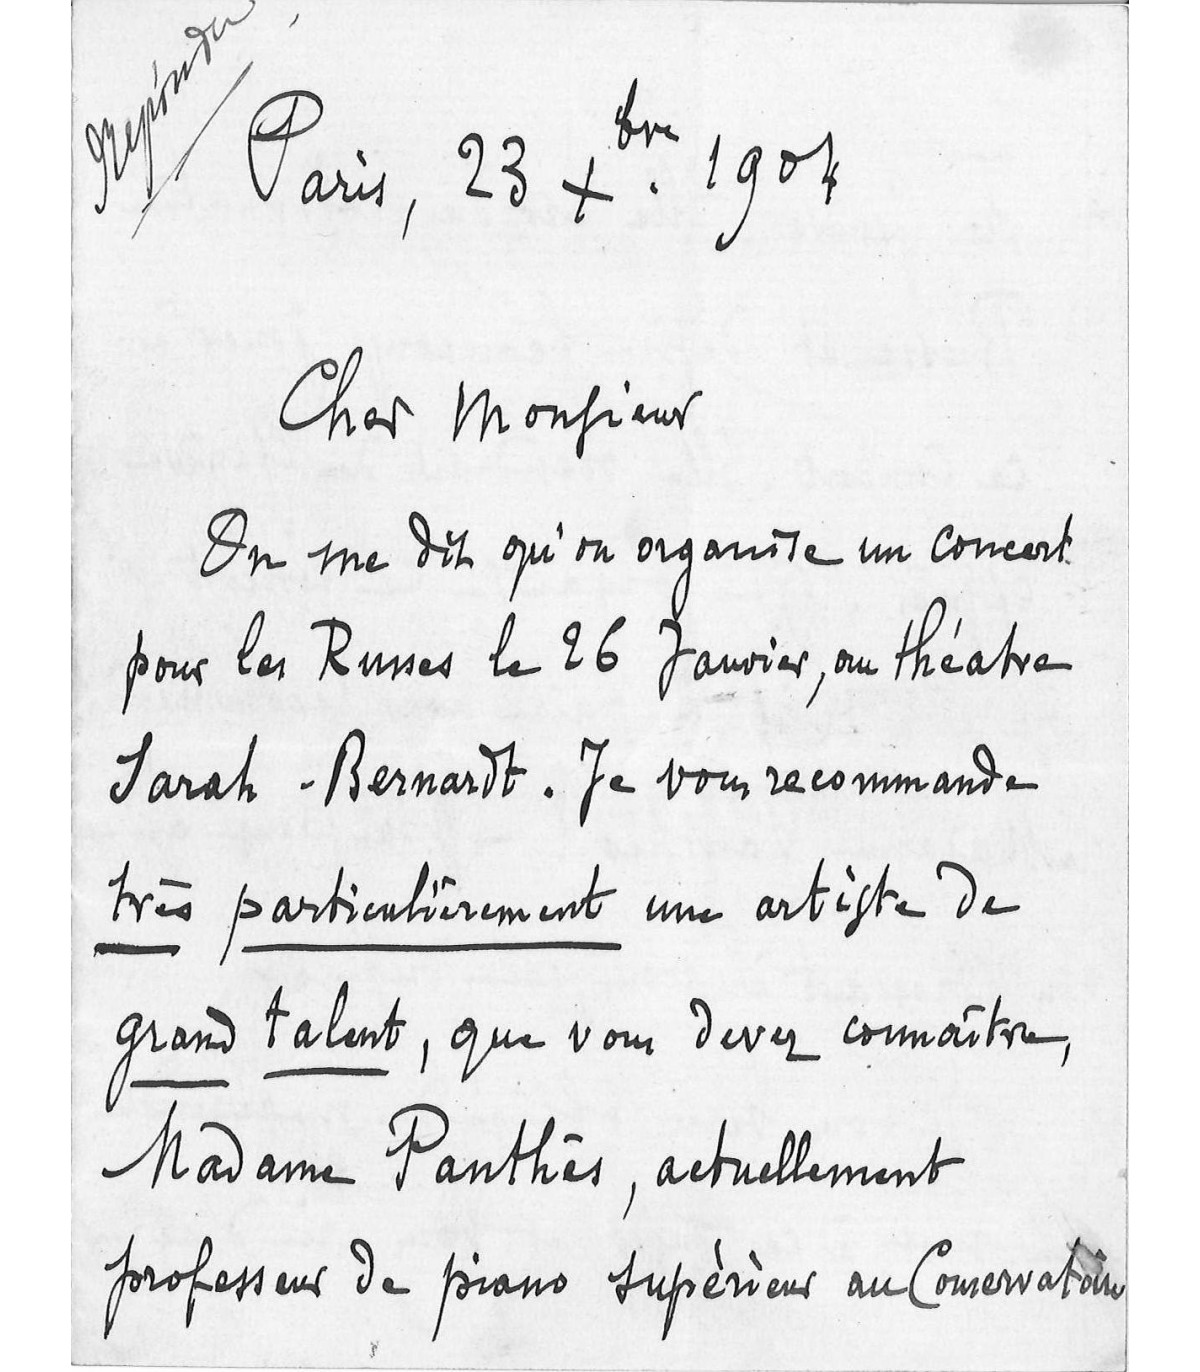 Répondu
Paris, 23 Xbre. 1904
Cher Monsieur
On me dit qu'on organise un concert
pour les Russes le 26 Janvier, au théatre
Sarah-Bernardt. Je vous recommande
très particulièrement une artiste de
grand talent, que vous devez connaître,
Madame Panthès, actuellement
professeur de piano supérieur au Conservatoire